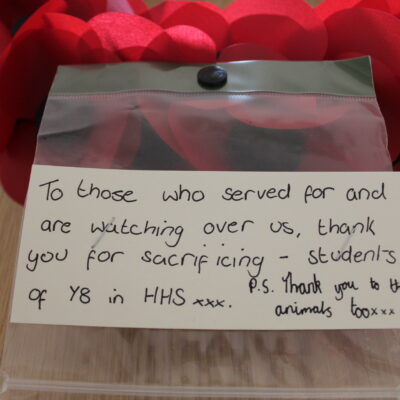 To those who served for and
are watching over us, thank
you for sacrificing - students
of Y8 in HHS xxx. P.S. Thank you to th
animals too xxx